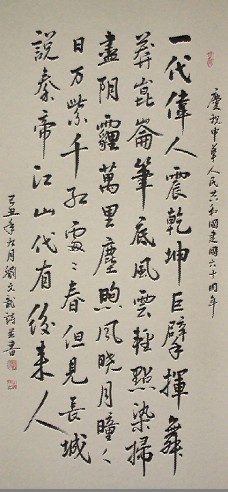 慶祝中華人民共和國建國六十周年
一代偉人震乾坤巨擘揮舞
莽崑崙筆底風雲輕點染掃
盡阴霾萬里塵煦风晓月曈々
日万紫千红處々春但見長城
說秦帝江山代有後来人
己丑年九月劉文龍詩並書